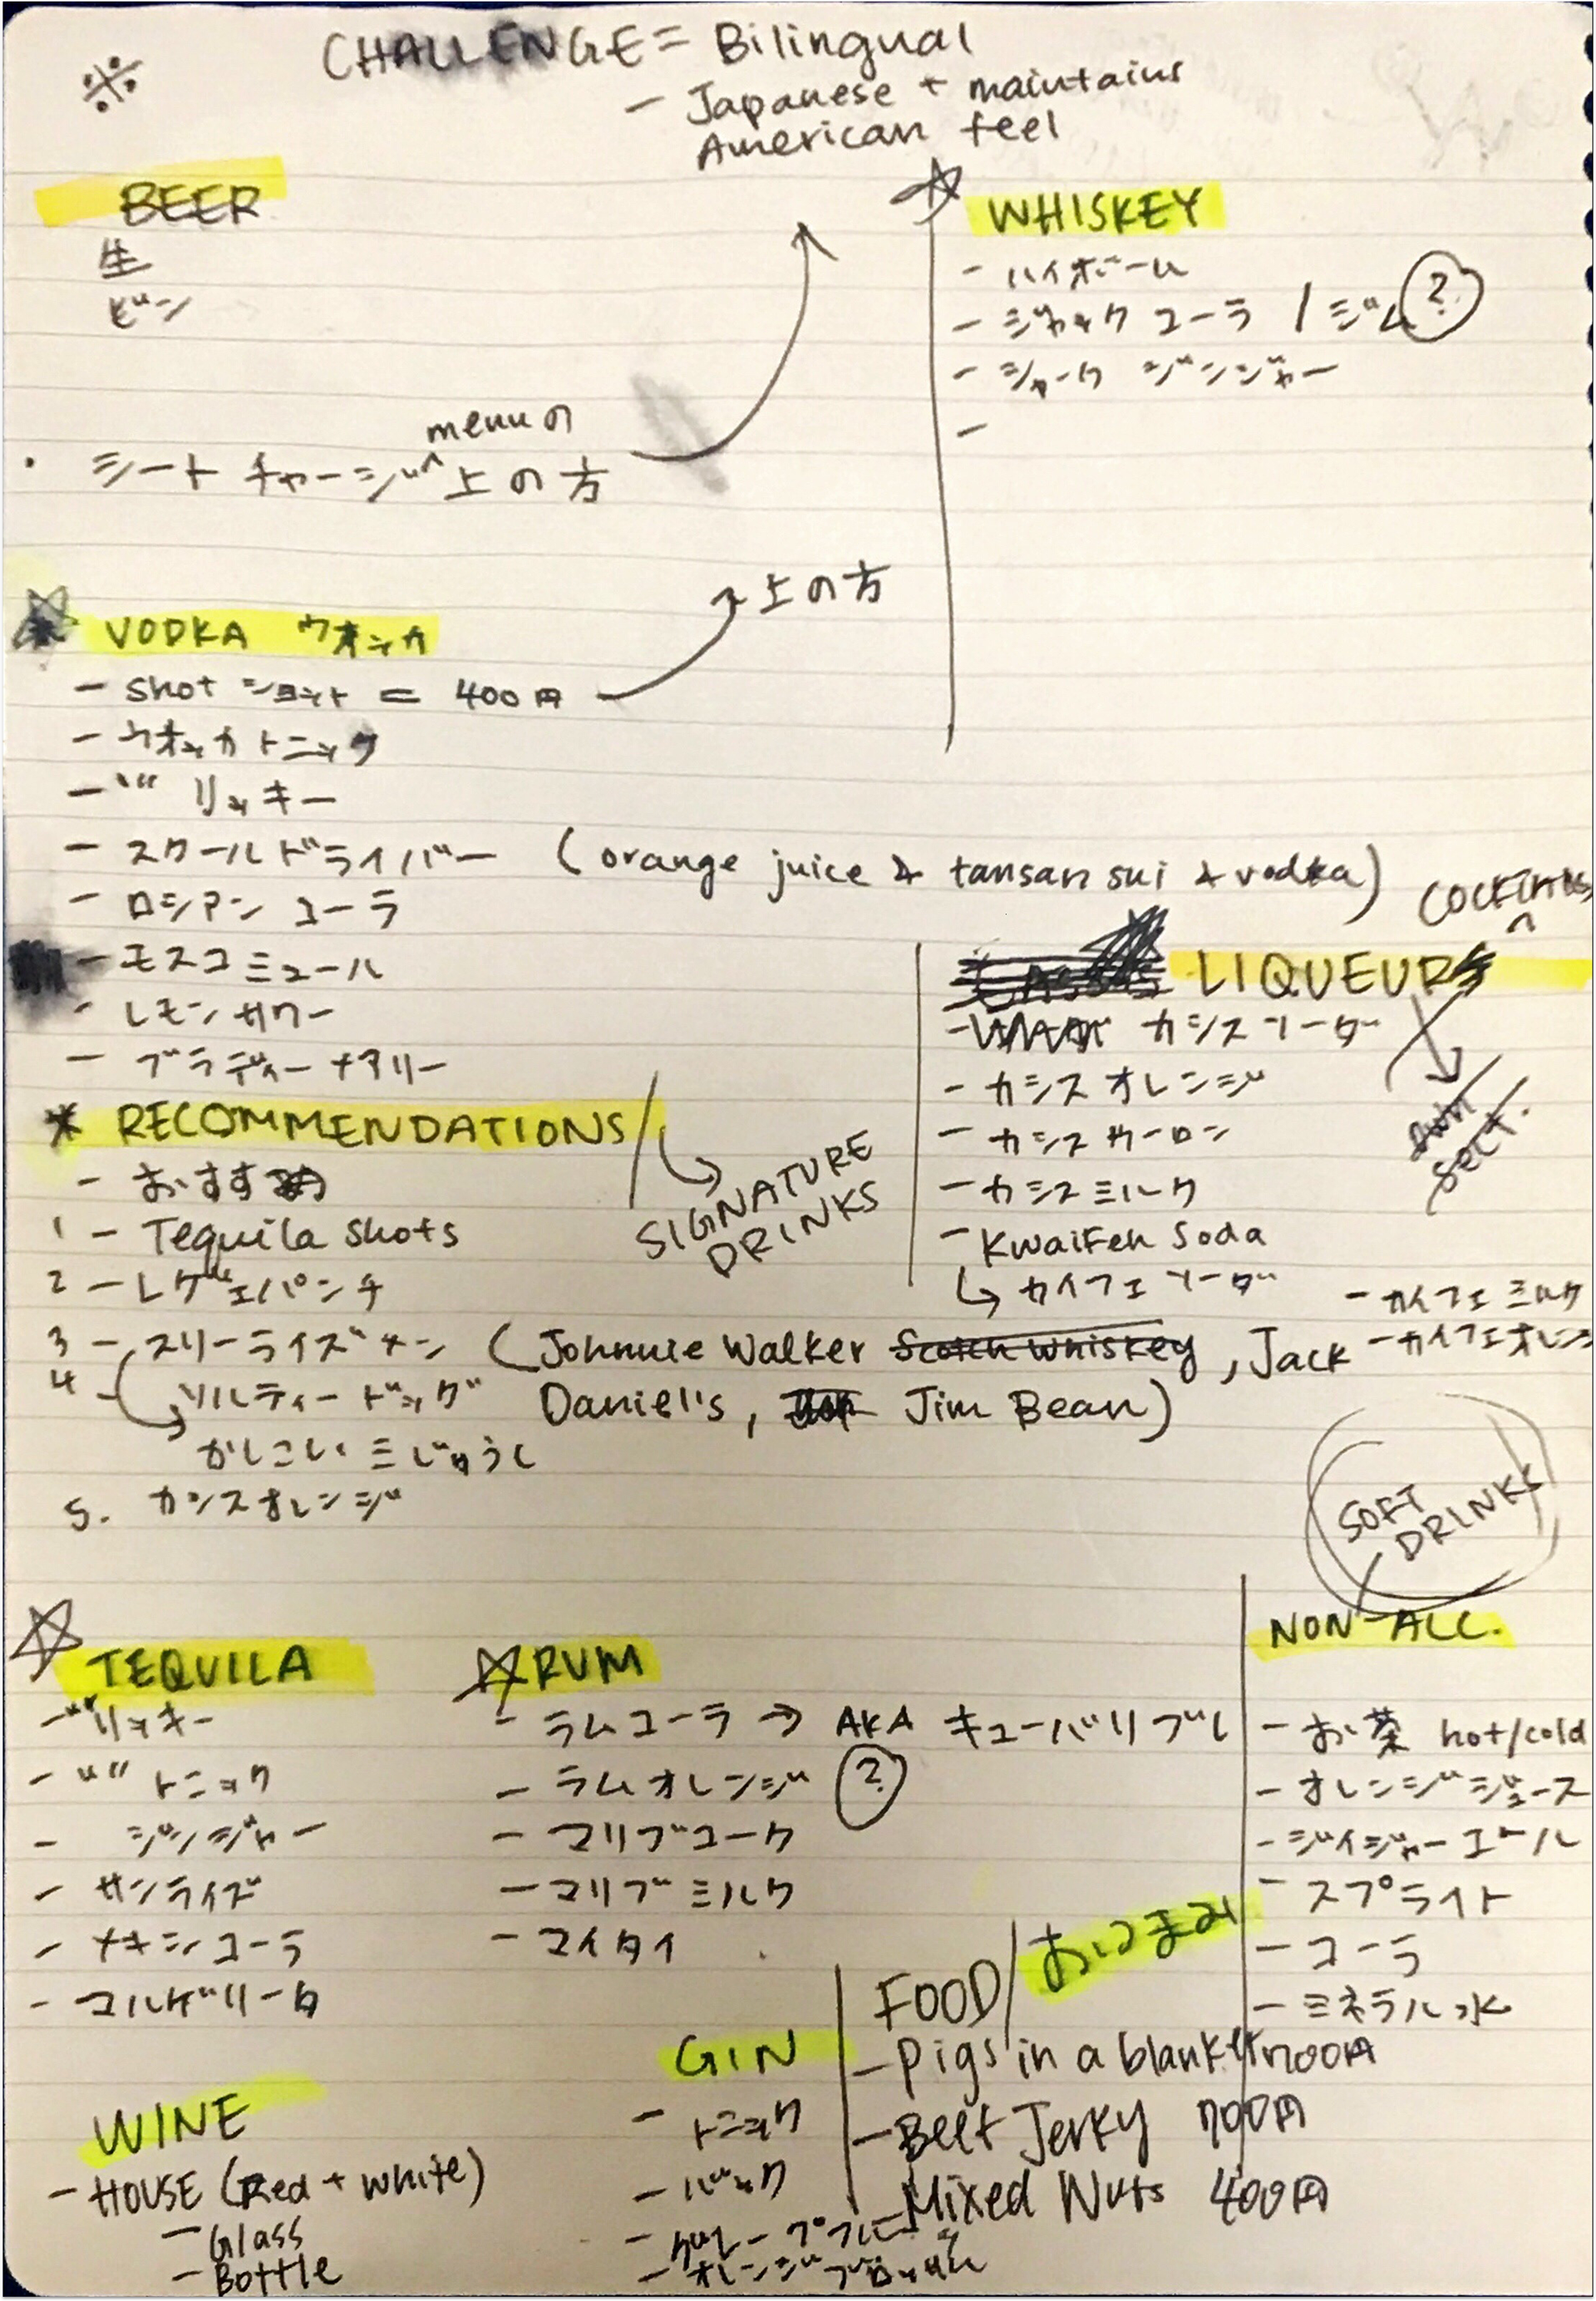 ※
CHALLENGE = Bilingual
- Japanese + maintains
American feel
BEER
生
ビン
menuの
・シートチャージ^上の方
☆ WHISKEY
- ハイボール
- ジャック コーラ / ジム ?
- ジャーク ジンジャー
-
上の方
★ VODKA ウオッカ
- shot ショット = 400円
- ウオッカトニック
- "" リッキー
- スクールドライバー (orange juice & tansan sui & vodka)
- ロシアン コーラ
- モスコミュール
- レモンサワー
- ブラディーメアリー
COCKTAILS
LIQUEURS
- カシスソーダー
- カシスオレンジ
- カシスウーロン
- カシスミルク
- KwaiFeh Soda
↳ カイフェ ソーダ
- カイフェミルク
- カイフェオレンジ
own
sect.
* RECOMMENDATIONS /
↳ SIGNATURE
DRINKS
- おすすめ
1 - Tequila shots
2 - レゲェパンチ
3 - スリーライズメン (Johnnie Walker Scotch Whiskey, Jack
Daniel's, Jim Bean)
4 - ソルティードッグ
かしこい三じゅうし
5. カシスオレンジ
SOFT
DRINKS
☆ TEQUILA
- "" リッキー
- "" トニック
- ジンジャー
- サンライズ
- メキシコーラ
- マルゲリータ
☆ RUM
- ラムコーラ → AKA キューバリブレ
- ラムオレンジ ?
- マリブコーク
- マリブミルク
- マイタイ
NON-ALC.
- お茶 hot/cold
- オレンジジュース
- ジイジャーエール
- スプライト
- コーラ
- ミネラル水
FOOD/おつまみ
- Pigs in a blanket 700円
- Beef Jerky 700円
- Mixed Nuts 400円
GIN
- トニック
- バック
- オレンジブロッサム
WINE
- HOUSE (Red + white)
- Glass
- Bottle